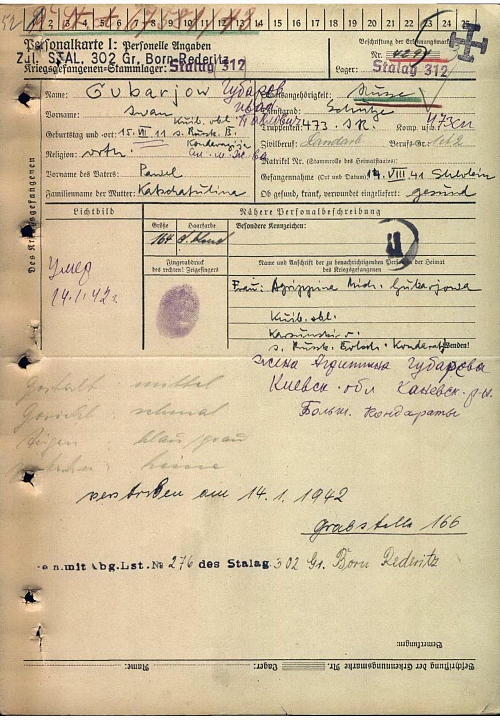 1 2 3 4 5 6 7 8 9 10 11 12 13 14 15 16 17 18 19 20 21 22 23 24 25
Personalkarte I: Personelle Angaben
Beschriftung der Erkennungsmarke
Zul. STAL. 302 Gr. Born-Rederitz
Nr.
Kriegsgefangenen-Stammlager: Stalag 312
Lager: Stalag 312
Des Kriegsgefangenen
Name: Gubarjow Губарев
Staatsangehörigkeit: Russe
Vorname: Iwan Иван
Dienstgrad: Schütze
Kuib. obl.
Truppenteil: 473. I.R. Komp. usw.:
Geburtstag und -ort: 15. VII. 11 s. Russk. B.
Zivilberuf: Berufs-Gr.:
Religion: orth.
Matrikel Nr. (Stammrolle des Heimatstaates):
Vorname des Vaters: Pawel
Gefangennahme (Ort und Datum): 14. VIII 41
Familienname der Mutter: Katschatulina
Ob gesund, krank, verwundet eingeliefert: gesund
Lichtbild
Nähere Personalbeschreibung
Größe Haarfarbe
Besondere Kennzeichen:
164
Fingerabdruck
des rechten! Zeigefingers
Name und Anschrift der zu benachrichtigenden Person in der Heimat
des Kriegsgefangenen
умер
14.1.42г.
Frau: Agrippina Mich. Gubarjowa
Kuib. obl.
Karsunski r.
s. Russk. Wenden!
жена Агриппина Губарева
Киевск. обл Каневск. р-н.
Больш. Кондараты
Gestalt: mittel
Gesicht: schmal
Augen: blau/grau
keine
verstorben am 14.1.1942
Grabstelle 166
mit Abg.Lst.№ 276 des Stalag 302 Gr. Born Rederitz
Bemerkungen:
Beschriftung der Erkennungsmarke Nr. Lager: Name: